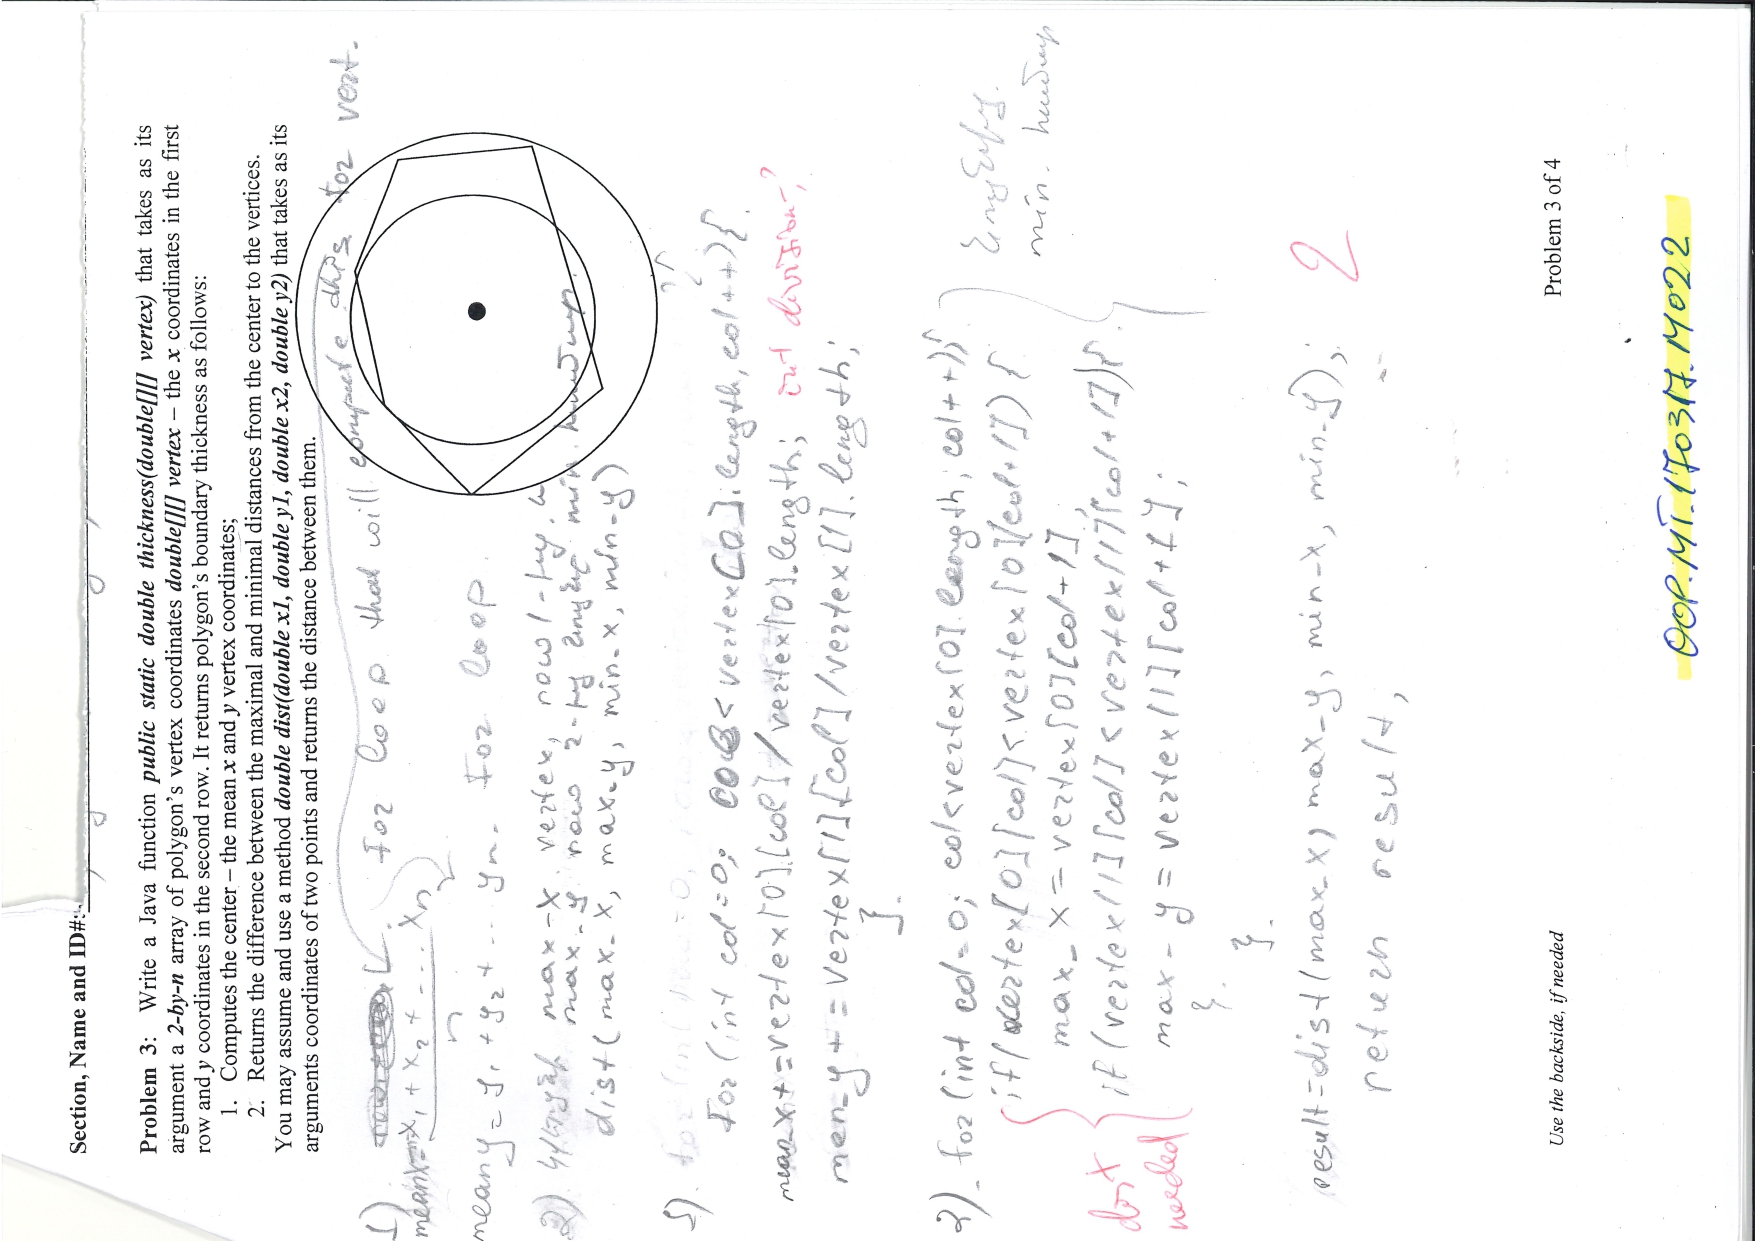 Section, Name and ID#:
Problem 3: Write a Java function public static double thickness(double[][] vertex) that takes as its
argument a 2-by-n array of polygon's vertex coordinates double[][] vertex – the x coordinates in the first
row and y coordinates in the second row. It returns polygon's boundary thickness as follows:
1. Computes the center – the mean x and y vertex coordinates;
2. Returns the difference between the maximal and minimal distances from the center to the vertices.
You may assume and use a method double dist(double x1, double y1, double x2, double y2) that takes as its
arguments coordinates of two points and returns the distance between them.
1) For loop that will compute this for vert.
meanx= x1 + x2 + ... xn
n
mean y = y1 + y2 + ... yn. For loop.
2) max-x vertex, row 1-
max-y row 2- min.
dist(max-x, max-y, min-x, min-y)
1). for(int row=0,
For (int col=0; col< vertex[0].length, col++){
mean x+=vertex[0][col]/vertex[0].length; int division-?
men-y += vertex[1][col]/vertex[1].length;
}
2) for(int col=0; col<vertex[0].length; col++){
if(vertex[0][col]<vertex[0][col+1]) {
max-x = vertex[0][col+1],
min.
if(vertex[1][col]<vertex[1][col+1]){
dist
max-y = vertex[1][col+1];
needed
}
}
result=dist(max-x, max-y, min-x, min-y); 2
return result,
Use the backside, if needed
Problem 3 of 4
OOP.MT.170317.M022